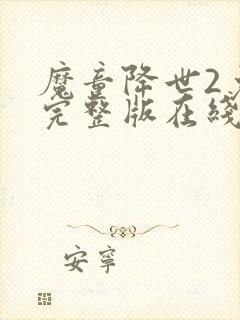 魔童降世2
完整版在綫
安寧